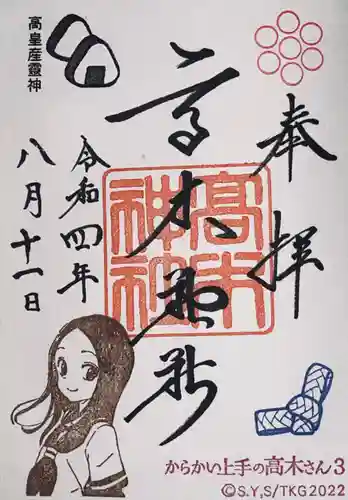 奉拝
高木神社
高木神社
令和四年
八月十一日
高皇産靈神
からかい上手の高木さん3
©S.Y,S/TKG2022